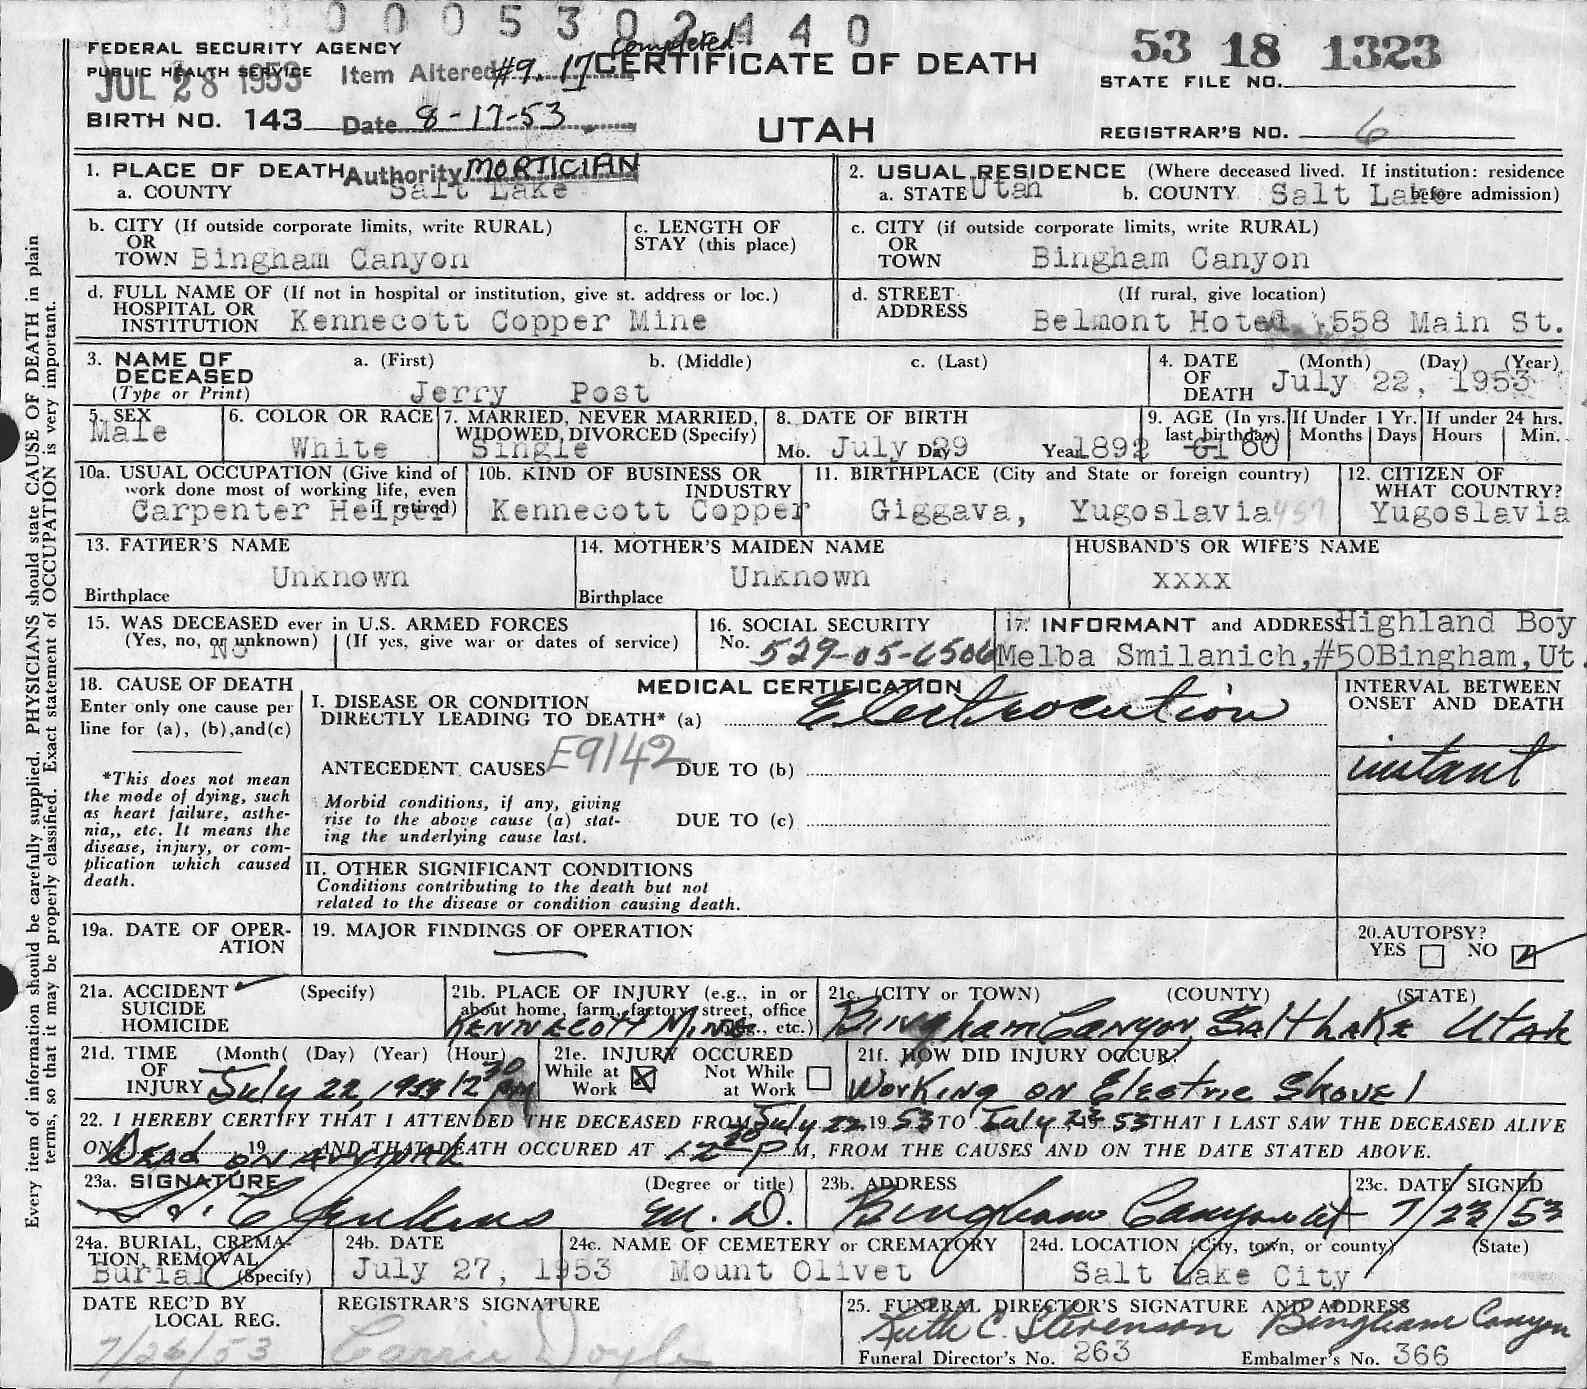 0005302440
FEDERAL SECURITY AGENCY
PUBLIC HEALTH SERVICE
JUL 28 1953
Item Altered #9. 17 completed
CERTIFICATE OF DEATH
53 18 1323
STATE FILE NO.
BIRTH NO. 143
Date 8-17-53
UTAH
REGISTRAR'S NO. 6
1. PLACE OF DEATH
Authority MORTICIAN
a. COUNTY Salt Lake
2. USUAL RESIDENCE (Where deceased lived. If institution: residence before admission)
a. STATE Utah b. COUNTY Salt Lake
b. CITY (If outside corporate limits, write RURAL)
OR
TOWN Bingham Canyon
c. LENGTH OF
STAY (this place)
c. CITY (if outside corporate limits, write RURAL)
OR
TOWN Bingham Canyon
d. FULL NAME OF (If not in hospital or institution, give st. address or loc.)
HOSPITAL OR
INSTITUTION Kennecott Copper Mine
d. STREET (If rural, give location)
ADDRESS Belmont Hotel 558 Main St.
3. NAME OF a. (First) b. (Middle) c. (Last)
DECEASED
(Type or Print) Jerry Post
4. DATE (Month) (Day) (Year)
OF
DEATH July 22, 1953
5. SEX
Male
6. COLOR OR RACE
White
7. MARRIED, NEVER MARRIED,
WIDOWED, DIVORCED (Specify)
Single
8. DATE OF BIRTH
Mo. July Day 29 Year 1892
9. AGE (In yrs.
last birthday)
61 60
If Under 1 Yr.
Months Days
If under 24 hrs.
Hours Min.
10a. USUAL OCCUPATION (Give kind of
work done most of working life, even
if retired)
Carpenter Helper
10b. KIND OF BUSINESS OR
INDUSTRY
Kennecott Copper
11. BIRTHPLACE (City and State or foreign country)
Giggava, Yugoslavia
12. CITIZEN OF
WHAT COUNTRY?
Yugoslavia
13. FATHER'S NAME
Unknown
Birthplace
14. MOTHER'S MAIDEN NAME
Unknown
Birthplace
HUSBAND'S OR WIFE'S NAME
xxxx
15. WAS DECEASED ever in U.S. ARMED FORCES
(Yes, no, or unknown) (If yes, give war or dates of service)
No
16. SOCIAL SECURITY
No. 529-05-6506
17. INFORMANT and ADDRESS Highland Boy
Melba Smilanich, #50Bingham, Ut.
18. CAUSE OF DEATH
Enter only one cause per
line for (a), (b),and(c)
*This does not mean
the mode of dying, such
as heart failure, asthe-
nia,, etc. It means the
disease, injury, or com-
plication which caused
death.
MEDICAL CERTIFICATION
I. DISEASE OR CONDITION
DIRECTLY LEADING TO DEATH* (a) Electrocution
ANTECEDENT CAUSES E9142 DUE TO (b)
Morbid conditions, if any, giving
rise to the above cause (a) stat-
ing the underlying cause last.
DUE TO (c)
INTERVAL BETWEEN
ONSET AND DEATH
instant
II. OTHER SIGNIFICANT CONDITIONS
Conditions contributing to the death but not
related to the disease or condition causing death.
19a. DATE OF OPER-
ATION
19. MAJOR FINDINGS OF OPERATION
20.AUTOPSY?
YES NO
21a. ACCIDENT (Specify)
SUICIDE
HOMICIDE
21b. PLACE OF INJURY (e.g., in or
about home, farm, factory, street, office
bldg., etc.)
Kennecott Mine
21c. (CITY or TOWN) (COUNTY) (STATE)
Bingham Canyon, Salt Lake Utah
21d. TIME (Month( (Day) (Year) (Hour)
OF
INJURY July 22, 1953 12 30 PM
21e. INJURY OCCURED
While at Not While
Work at Work
21f. HOW DID INJURY OCCUR?
Working on Electric Shovel
22. I HEREBY CERTIFY THAT I ATTENDED THE DECEASED FROM July 22 19 53 TO July 23 19 53 THAT I LAST SAW THE DECEASED ALIVE
ON Dead on arrival 19 AND THAT DEATH OCCURED AT 12 30 P M, FROM THE CAUSES AND ON THE DATE STATED ABOVE.
23a. SIGNATURE (Degree or title)
Jenkins M. D.
23b. ADDRESS
Bingham Canyon Ut
23c. DATE SIGNED
7/23/53
24a. BURIAL, CREMA-
TION, REMOVAL
(Specify)
Burial
24b. DATE
July 27, 1953
24c. NAME OF CEMETERY or CREMATORY
Mount Olivet
24d. LOCATION (City, town, or county) (State)
Salt Lake City
DATE REC'D BY
LOCAL REG.
7/26/53
REGISTRAR'S SIGNATURE
Carrie Doyle
25. FUNERAL DIRECTOR'S SIGNATURE AND ADDRESS
Ruth C. Stevenson Bingham Canyon
Funeral Director's No. 263 Embalmer's No. 366
Every item of information should be carefully supplied. PHYSICIANS should state CAUSE OF DEATH in plain
terms, so that it may be properly classified. Exact statement of OCCUPATION is very important.